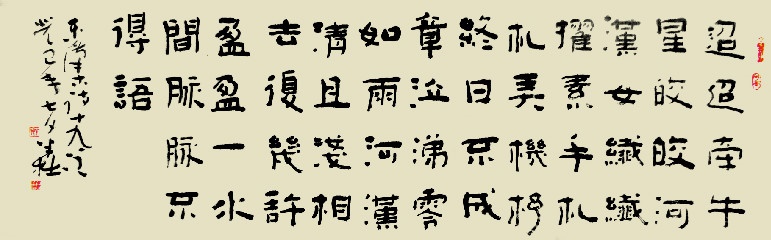 迢迢牵牛
星皎皎河
漢女纖纖
擢素手札
札弄機杼
終日不成
章泣涕零
如雨河漢
清且淺相
去復幾許
盈盈一水
間脈脈不
得語
古诗十九首
癸巳年七夕